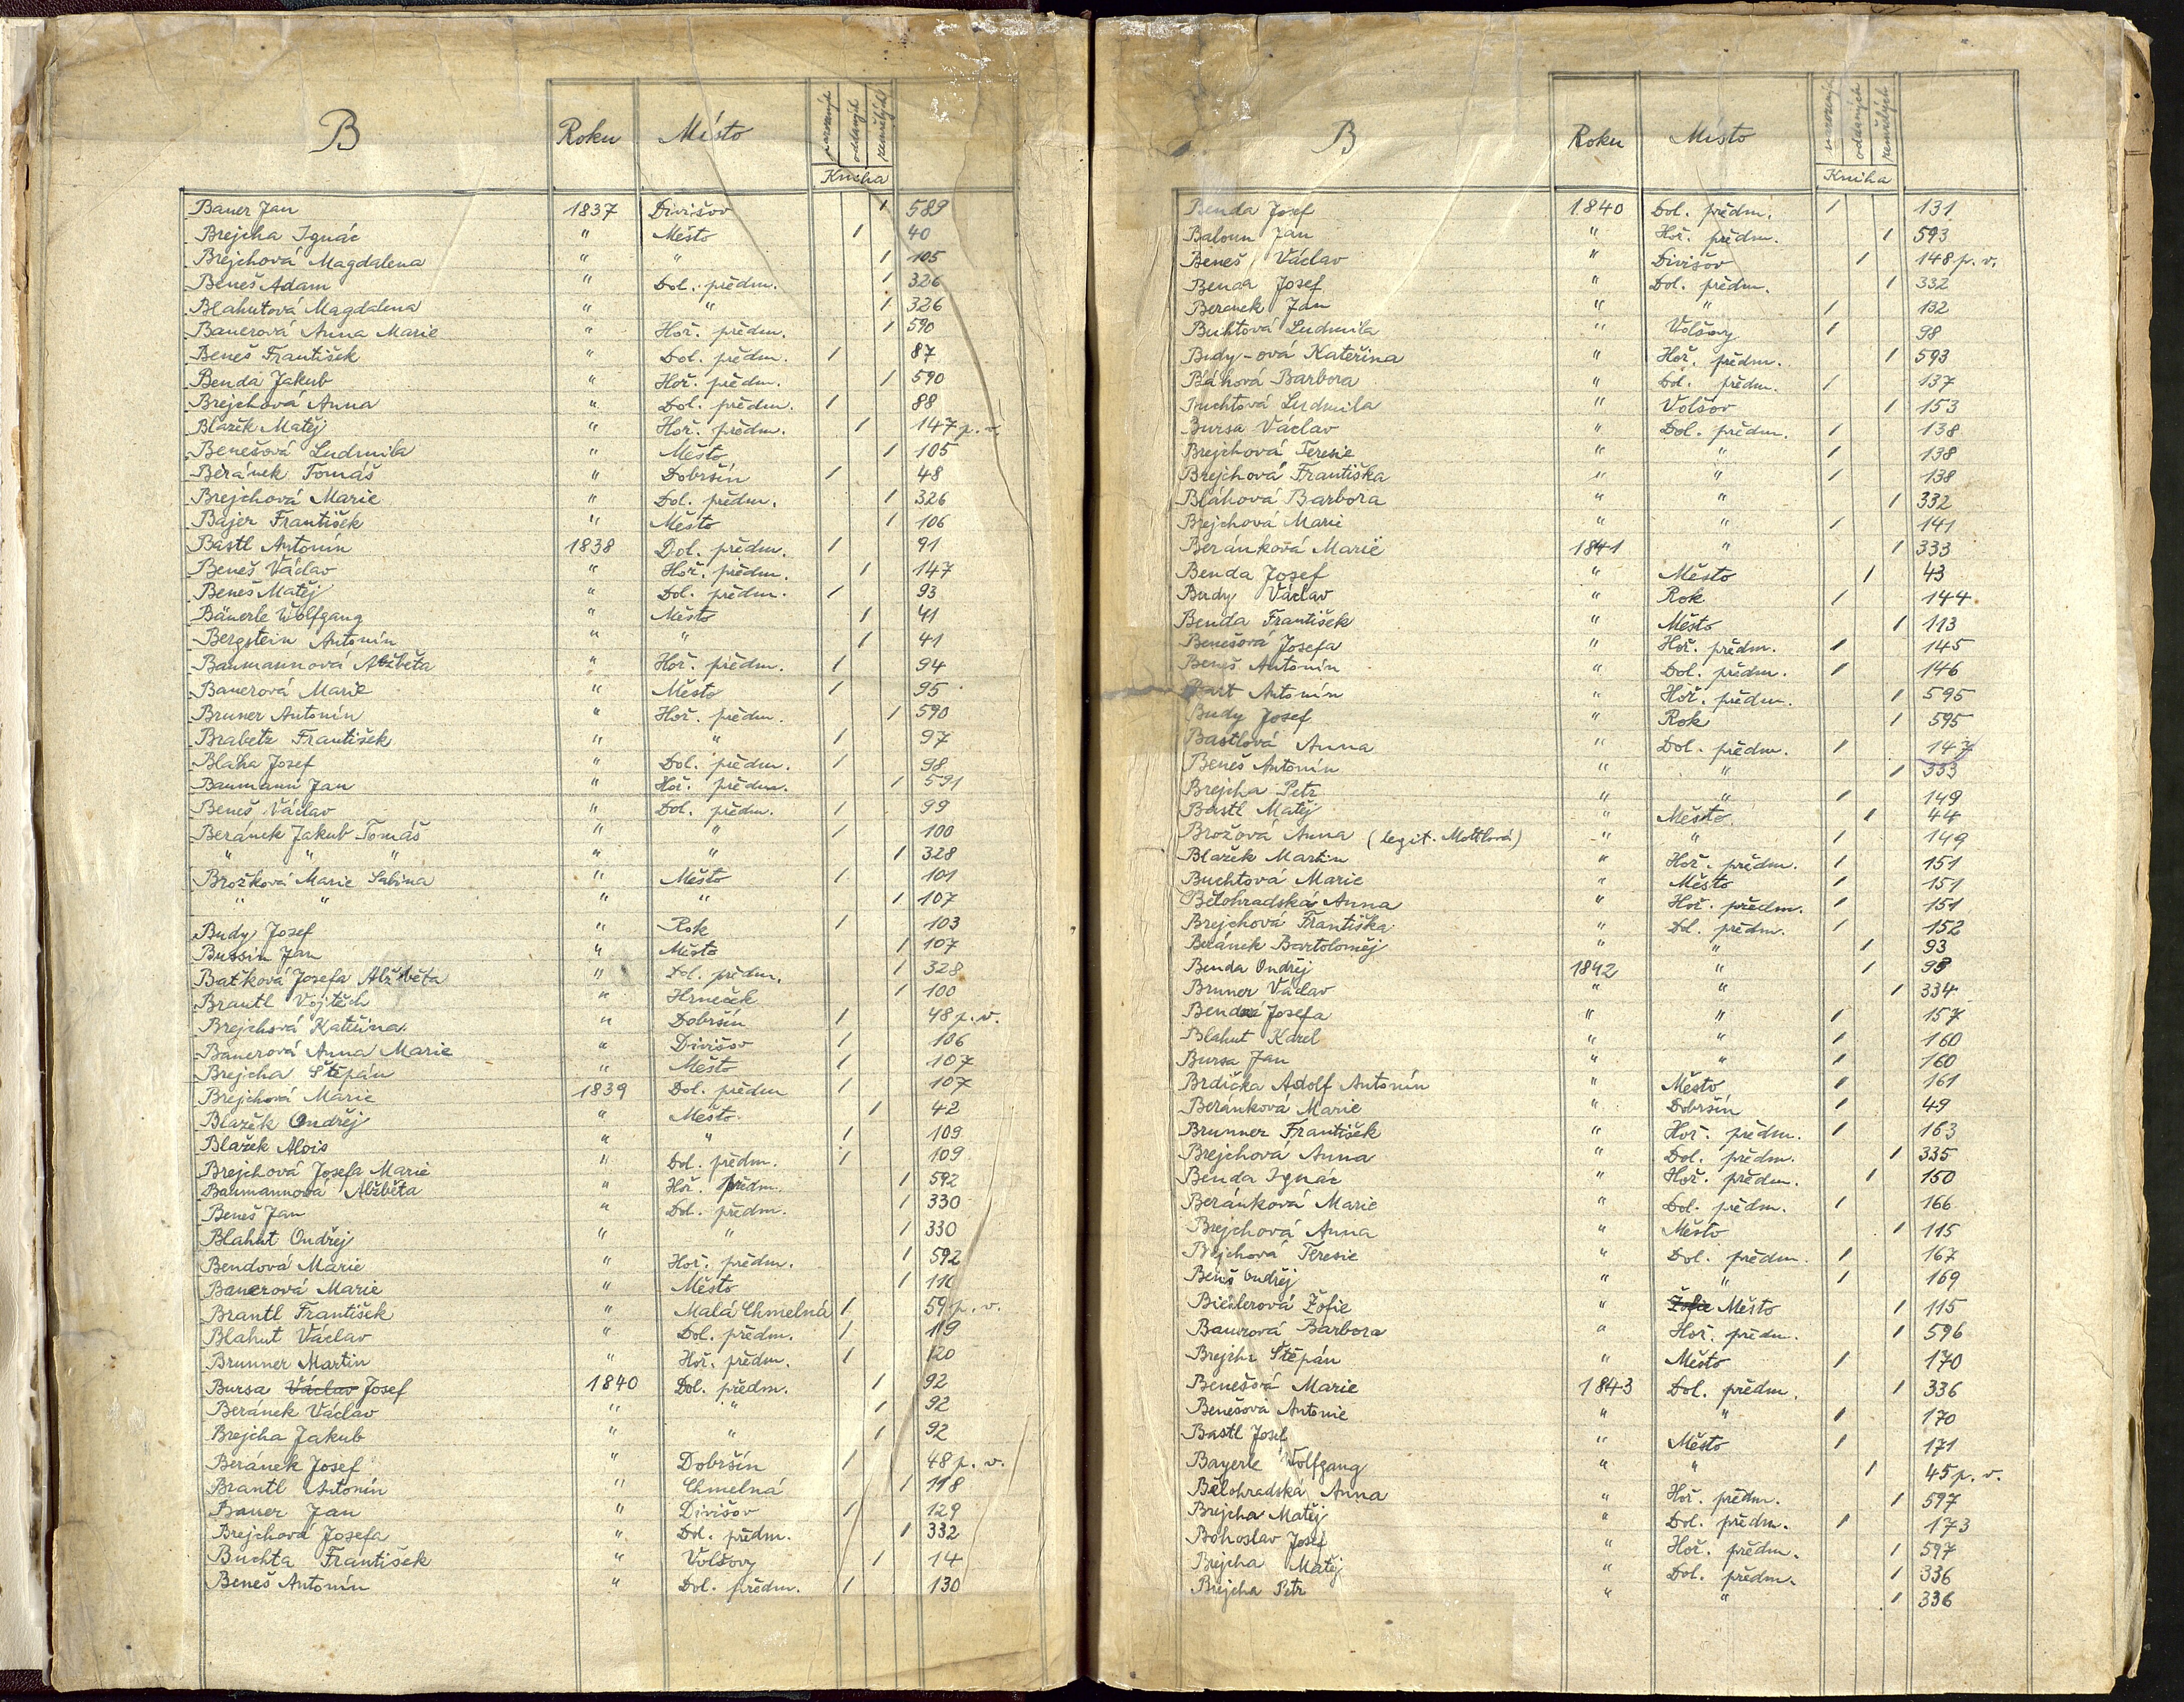 B Roku Místo narozených oddaných zemřelých
Kniha
Bauer Jan 1837 Divišov / 589
Brejcha Ignác " Město / 40
Brejchová Magdalena " " / 105
Beneš Adam " Dol. předm. / 326
Blahutová Magdalena " " / 326
Bauerová Anna Marie " Hoř. předm. / 590
Beneš František " Dol. předm. / 87
Benda Jakub " Hoř. předm. / 590
Brejchová Anna " Dol. předm. / 88
Blažek Matěj " Hoř. předm. / 147 p. v.
Benešová Ludmila " Město / 105
Beránek Tomáš " Dobršín / 48
Brejchová Marie " Dol. předm. / 326
Bajer František " Město / 106
Bastl Antonín 1838 Dol. předm. / 91
Beneš Václav " Hoř. předm. / 147
Beneš Matěj " Dol. předm. / 93
Bäuerle Wolfgang " Město / 41
Bergstein Antonín " " / 41
Baumannová Alžběta " Hoř. předm. / 94
Bauerová Marie " Město / 95
Bruner Antonín " Hoř. předm. / 590
Brabetz František " " / 97
Bláha Josef " Dol. předm. / 98
Baumann Jan " Hoř. předm. / 591
Beneš Václav " Dol. předm. / 99
Beránek Jakub Tomáš " " / 100
" " " " " / 328
Brožková Marie Sabina " Město / 101
" " " " / 107
Budy Josef " Rok / 103
Bussin Jan " Město / 107
Baťková Josefa Alžběta " Dol. předm. / 328
Brantl Vojtěch " Hrneček / 100
Brejchová Kateřina " Dobršín / 48 p. v.
Bauerová Anna Marie " Divišov / 106
Brejcha Štěpán " Město / 107
Brejchová Marie 1839 Dol. předm / 107
Blažek Ondřej " Město / 42
Blažek Alois " " / 109
Brejchová Josefa Marie " Dol. předm. / 109
Baumannová Alžběta " Hoř. předm. / 592
Beneš Jan " Dol. předm. / 330
Blahut Ondřej " " / 330
Bendová Marie " Hoř. předm. / 592
Bauerová Marie " Město / 110
Brantl František " Malá Chmelná / 59 p. v.
Blahut Václav " Dol. předm. / 119
Brunner Martin " Hoř. předm. / 120
Bursa Václav Josef 1840 Dol. předm. / 92
Beránek Václav " " / 92
Brejcha Jakub " " / 92
Beránek Josef " Dobršín / 48 p. v.
Brantl Antonín " Chmelná / 118
Bauer Jan " Divišov / 129
Brejchová Josefa " Dol. předm. / 332
Buchta František " Volšovy / 14
Beneš Antonín " Dol. předm. / 130
B Roku Místo narozených oddaných zemřelých
Kniha
Benda Josef 1840 Dol. předm. / 131
Baloun Jan " Hoř. předm. / 593
Beneš Václav " Divišov / 148 p. v.
Benda Josef " Dol. předm. / 332
Beranek Jan " " / 132
Buhtová Ludmila " Volšovy / 98
Budy-ová Kateřina " Hoř. předm. / 593
Bláhová Barbora " Dol. předm. / 137
Buchtová Ludmila " Volšov / 153
Bursa Václav " Dol. předm. / 138
Brejchová Teresie " " / 138
Brejchová Františka " " / 138
Bláhová Barbora " " / 332
Brejchová Marie " " / 141
Beránková Marie 1841 " / 333
Benda Josef " Město / 43
Budy Václav " Rok / 144
Benda František " Město / 113
Benešová Josefa " Hoř. předm. / 145
Beneš Antonín " Dol. předm. / 146
Bart Antonín " Hoř. předm. / 595
Budy Josef " Rok / 595
Bastlová Anna " Dol. předm. / 147
Beneš Antonín " " / 333
Brejcha Petr " " / 149
Bastl Matěj " Město / 44
Brožová Anna (legit. Mottlová) " " / 149
Blažek Martin " Hoř. předm. / 151
Buchtová Marie " Město / 151
Bělohradská Anna " Hoř. předm. / 151
Brejchová Františka " Dol. předm. / 152
Beránek Bartoloměj " " / 93
Benda Ondřej 1842 " / 93
Bruner Václav " " / 334
Bendová Josefa " " / 157
Blahut Karel " " / 160
Bursa Jan " " / 160
Brdička Adolf Antonín " Město / 161
Beránková Marie " Dobršín / 49
Brunner František " Hoř. předm. / 163
Brejchová Anna " Dol. předm. / 335
Benda Ignác " Hoř. předm. / 150
Beránková Marie " Dol. předm. / 166
Brejchová Anna " Město / 115
Brejchová Teresie " Dol. předm. / 167
Beneš Ondřej " " / 169
Bichlerová Žofie " Žofie Město / 115
Baurová Barbora " Hoř. předm. / 596
Brejcha Štěpán " Město / 170
Benešová Marie 1843 Dol. předm. / 336
Benešová Antonie " " / 170
Bastl Josef " Město / 171
Bayerle Wolfgang " " / 45 p. v.
Bělohradská Anna " Hoř. předm. / 597
Brejcha Matěj " Dol. předm. / 173
Bohoslav Josef " Hoř. předm. / 597
Brejcha Matěj " Dol. předm. / 336
Brejcha Petr " " / 336